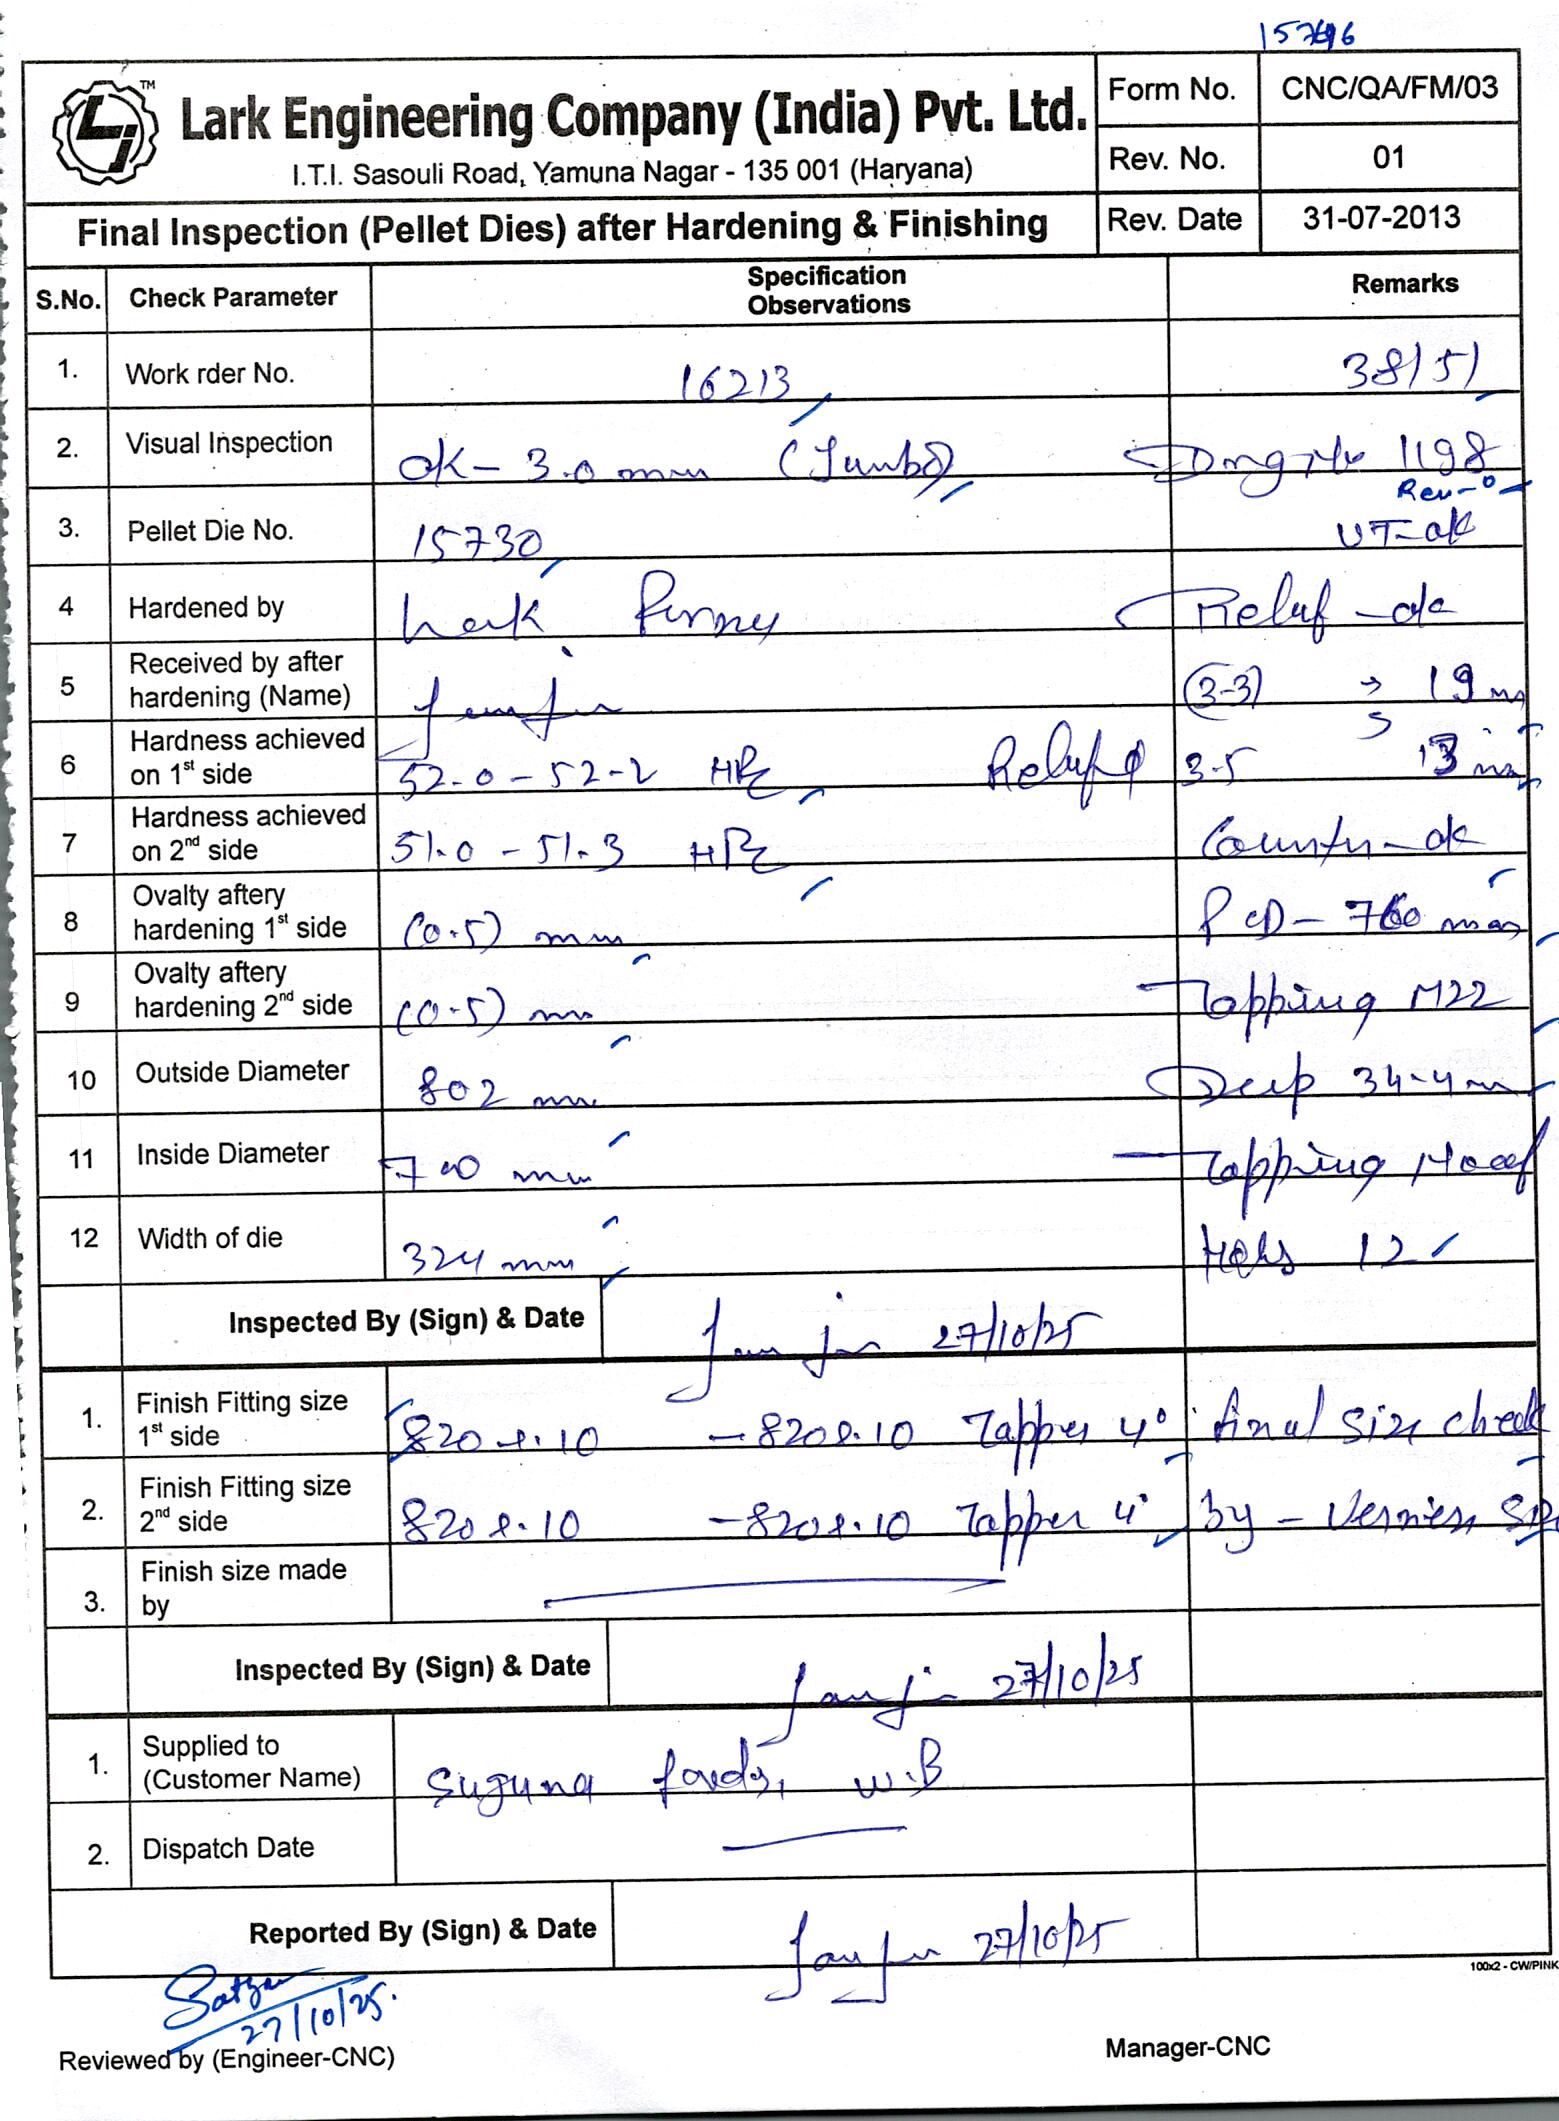 LJ TM
Lark Engineering Company (India) Pvt. Ltd.
I.T.I. Sasouli Road, Yamuna Nagar - 135 001 (Haryana)
Form No. CNC/QA/FM/03
Rev. No. 01
Final Inspection (Pellet Dies) after Hardening & Finishing
Rev. Date 31-07-2013
S.No. Check Parameter Specification Observations Remarks
1. Work rder No. 16213 38/51
2. Visual Inspection OK - 3.0 mm (Jumbo) 1198
Rev-0
3. Pellet Die No. 15730 UT-ok
4 Hardened by Lark Reluf - ok
5 Received by after hardening (Name) (3-3) → 19 mm
6 Hardness achieved on 1st side 52.0 - 52-2 HRc Reluf φ 3-5 13 mm
7 Hardness achieved on 2nd side 51.0 - 51.3 HRc Countr - ok
8 Ovalty aftery hardening 1st side (0.5) mm PCD - 760 mm
9 Ovalty aftery hardening 2nd side (0.5) mm Tapping M22
10 Outside Diameter 802 mm Deep 34-4 m
11 Inside Diameter 700 mm Tapping
12 Width of die 324 mm Hols 12
Inspected By (Sign) & Date 27/10/25
1. Finish Fitting size 1st side Tapper 4° final size check
2. Finish Fitting size 2nd side Tapper 4° by - Vernier
3. Finish size made by
Inspected By (Sign) & Date 27/10/25
1. Supplied to (Customer Name) Suguna foods, W.B
2. Dispatch Date
Reported By (Sign) & Date 27/10/25
100x2 - CW/PINK
27/10/25.
Reviewed by (Engineer-CNC) Manager-CNC